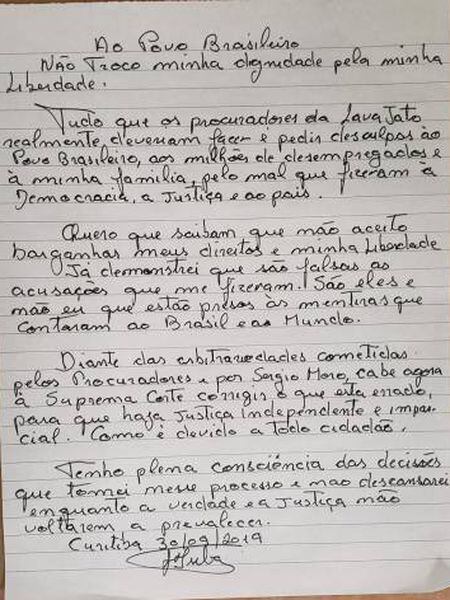 Ao Povo Brasileiro
Não Troco minha dignidade pela minha
Liberdade.
Tudo que os procuradores da Lava Jato
realmente deveriam fazer é pedir desculpas ao
Povo Brasileiro, aos milhões de desempregados e
à minha família, pelo mal que fizeram à
Democracia, a Justiça e ao país.
Quero que saibam que não aceito
barganhar meus direitos e minha Liberdade
Já demonstrei que são falsas as
acusações que me fizeram. São eles e
não eu que estão presos às mentiras que
contaram ao Brasil e ao Mundo.
Diante das arbitrariedades cometidas
pelos Procuradores e por Sergio Moro, cabe agora
à Suprema Corte corrigir o que está errado,
para que haja Justiça independente e impar-
cial. Como é devido a todo cidadão.
Tenho plena consciência das decisões
que tomei nesse processo e não descansarei
enquanto a verdade e a Justiça não
voltarem a prevalecer.
Curitiba 30/09/2019
Lula